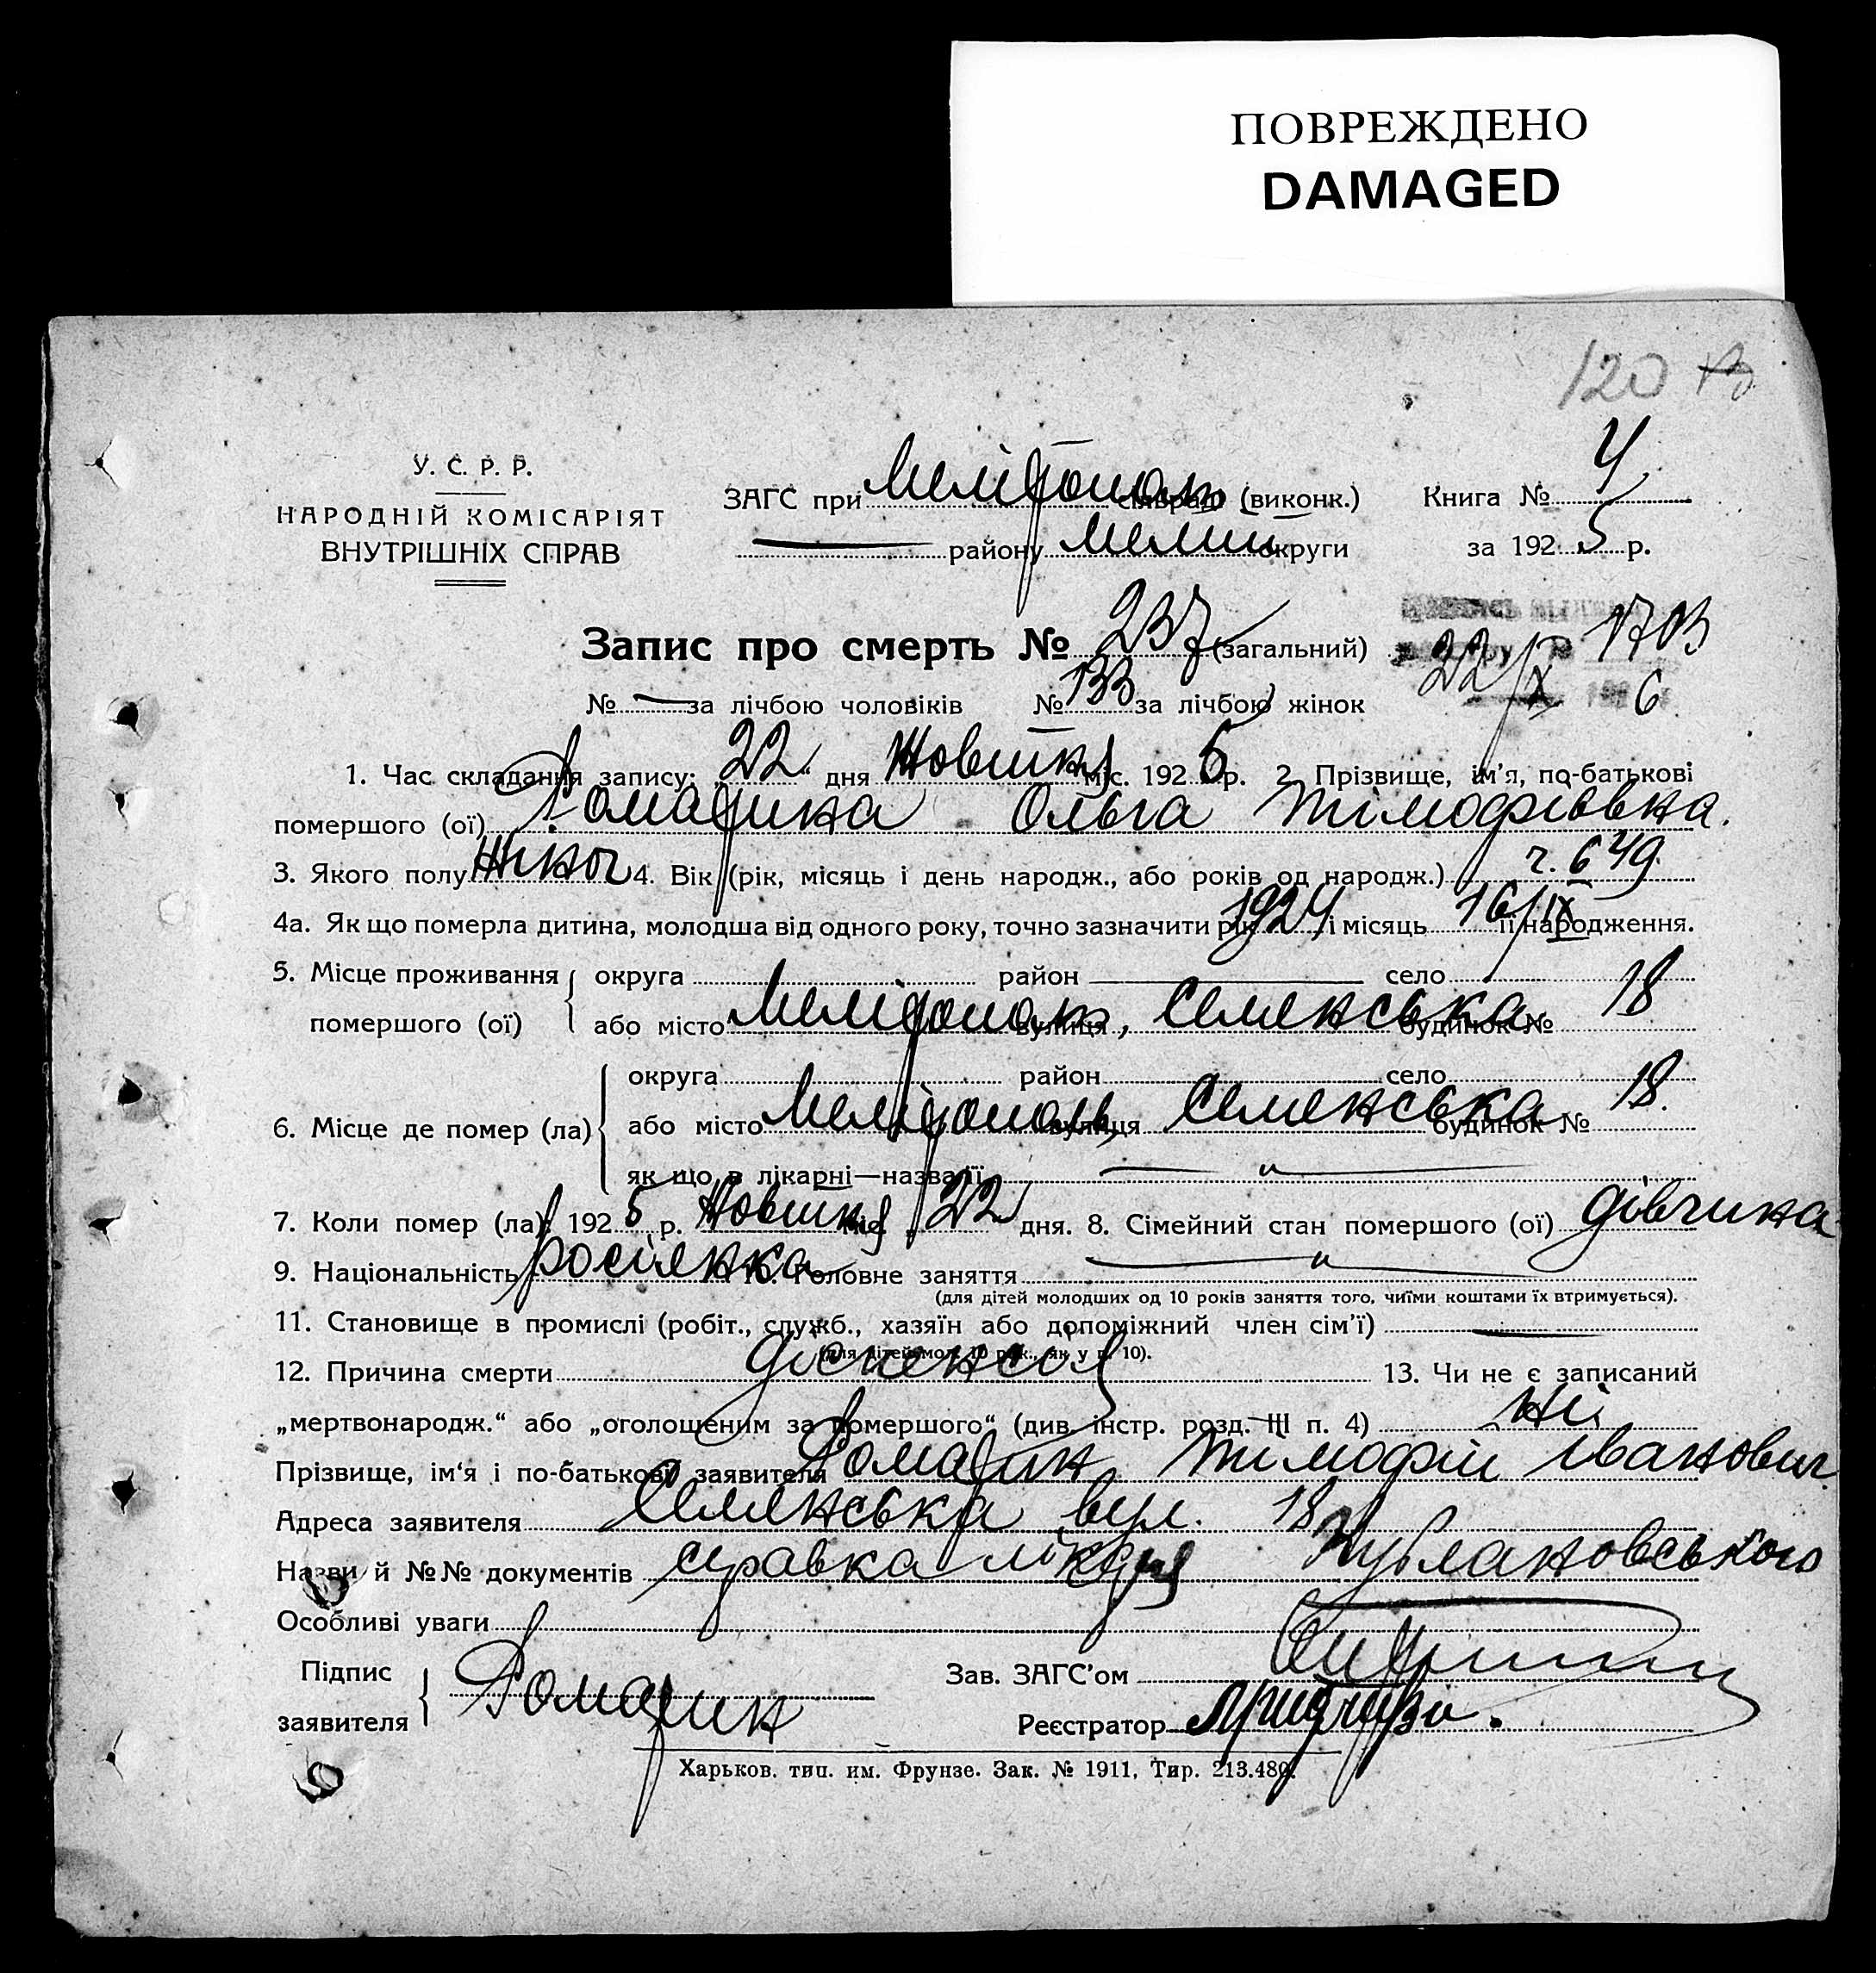 ПОВРЕЖДЕНО
DAMAGED
120
У. С. Р. Р.
НАРОДНІЙ КОМІСАРІЯТ
ВНУТРІШНІХ СПРАВ
ЗАГС при Мелітополь сільраді (виконк.)
району Меліт округи
Книга № 4
за 1925 р.
Запис про смерть № 237 (загальний)
№ — за лічбою чоловіків № 133 за лічбою жінок
22/X 1703
6
1. Час складання запису: „22“ дня Жовтня міс. 1925 р. 2. Прізвище, ім'я, по-батькові
помершого (ої) Ромадина Ольга Тімофіівна.
3. Якого полу Жіноч 4. Вік (рік, місяць і день народж., або років од народж.)
4а. Як що померла дитина, молодша від одного року, точно зазначити рік 1924 і місяць 16/IX її народження.
5. Місце проживання помершого (ої) { округа район — село
або місто Мелітополь, вулиця Семенська будинок № 18
6. Місце де помер (ла) { округа район село
або місто Мелітополь, вулиця Семенська будинок № 18.
як що в лікарні—назва її — „ —
7. Коли помер (ла): 1925 р. Жовтня міс. 22 дня. 8. Сімейний стан помершого (ої) дівчина
9. Національність росіянка 10. Головне заняття — „ —
(для дітей молодших од 10 років заняття того, чиїми коштами їх втримується).
11. Становище в промислі (робіт., служб., хазяїн або допоміжний член сім'ї) —
(для дітей мол. 10 рок., як у п. 10).
12. Причина смерти 13. Чи не є записаний
„мертвонародж.“ або „оголошеним за помершого“ (див. інстр. розд. III п. 4) Ні.
Прізвище, ім'я і по-батькові заявителя Ромадин Тимофій Іванович
Адреса заявителя Семенська вул. 18
Назви й №№ документів справка лікаря
Особливі уваги
Підпис
заявителя } Ромадин
Зав. ЗАГС'ом
Реєстратор
Харьков. тип. им. Фрунзе. Зак. № 1911, Тир. 213.480.